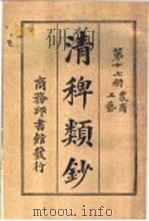 第十七册 農商
工藝
清稗類鈔
商務印書館發行